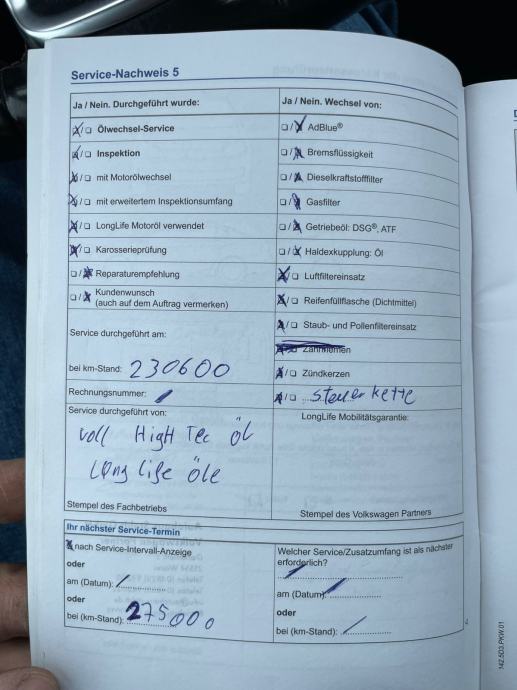 Service-Nachweis 5
Ja / Nein. Durchgeführt wurde:
☒/☐ Ölwechsel-Service
☒/☐ Inspektion
☒/☐ mit Motorölwechsel
☒/☐ mit erweitertem Inspektionsumfang
☒/☐ LongLife Motoröl verwendet
☒/☐ Karosserieprüfung
☐/☒ Reparaturempfehlung
☐/☒ Kundenwunsch
(auch auf dem Auftrag vermerken)
Service durchgeführt am:
bei km-Stand: 230600
Rechnungsnummer: /
Service durchgeführt von:
voll High Tec öl
Long life öle
Stempel des Fachbetriebs
Ja / Nein. Wechsel von:
☐/☒ AdBlue®
☐/☒ Bremsflüssigkeit
☐/☒ Dieselkraftstofffilter
☐/☒ Gasfilter
☐/☒ Getriebeöl: DSG®, ATF
☐/☒ Haldexkupplung: Öl
☒/☐ Luftfiltereinsatz
☒/☐ Reifenfüllflasche (Dichtmittel)
☒/☐ Staub- und Pollenfiltereinsatz
☒/☐ Zahnriemen
☒/☐ Zündkerzen
☒/☐ steuerkette
LongLife Mobilitätsgarantie:
Stempel des Volkswagen Partners
Ihr nächster Service-Termin
☒ nach Service-Intervall-Anzeige
oder
am (Datum): /
oder
bei (km-Stand): 275000
Welcher Service/Zusatzumfang ist als nächster
erforderlich?
/
am (Datum): /
oder
bei (km-Stand): /
142.5D3.PKW.01